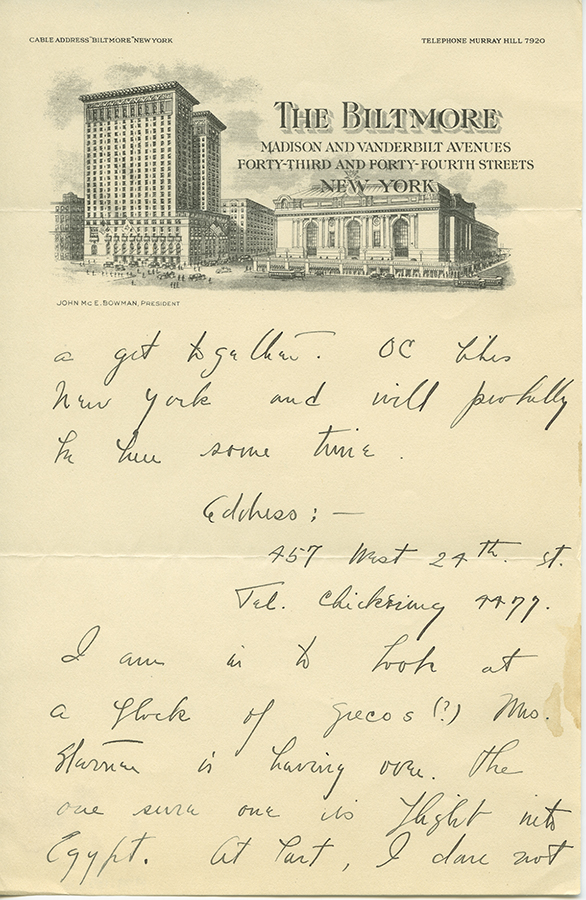 CABLE ADDRESS "BILTMORE" NEW YORK
TELEPHONE MURRAY HILL 7920
THE BILTMORE
MADISON AND VANDERBILT AVENUES
FORTY-THIRD AND FORTY-FOURTH STREETS
NEW YORK
JOHN MCE. BOWMAN, PRESIDENT
a get together. OC likes
New York and will probably
be here some time.
Address: —
457 West 24th. St.
Tel. Chickering 4477.
I am in to look at
a flock of Grecos (?) Mrs.
is having over. The
one sure one is Flight into
Egypt. At last, I dare not